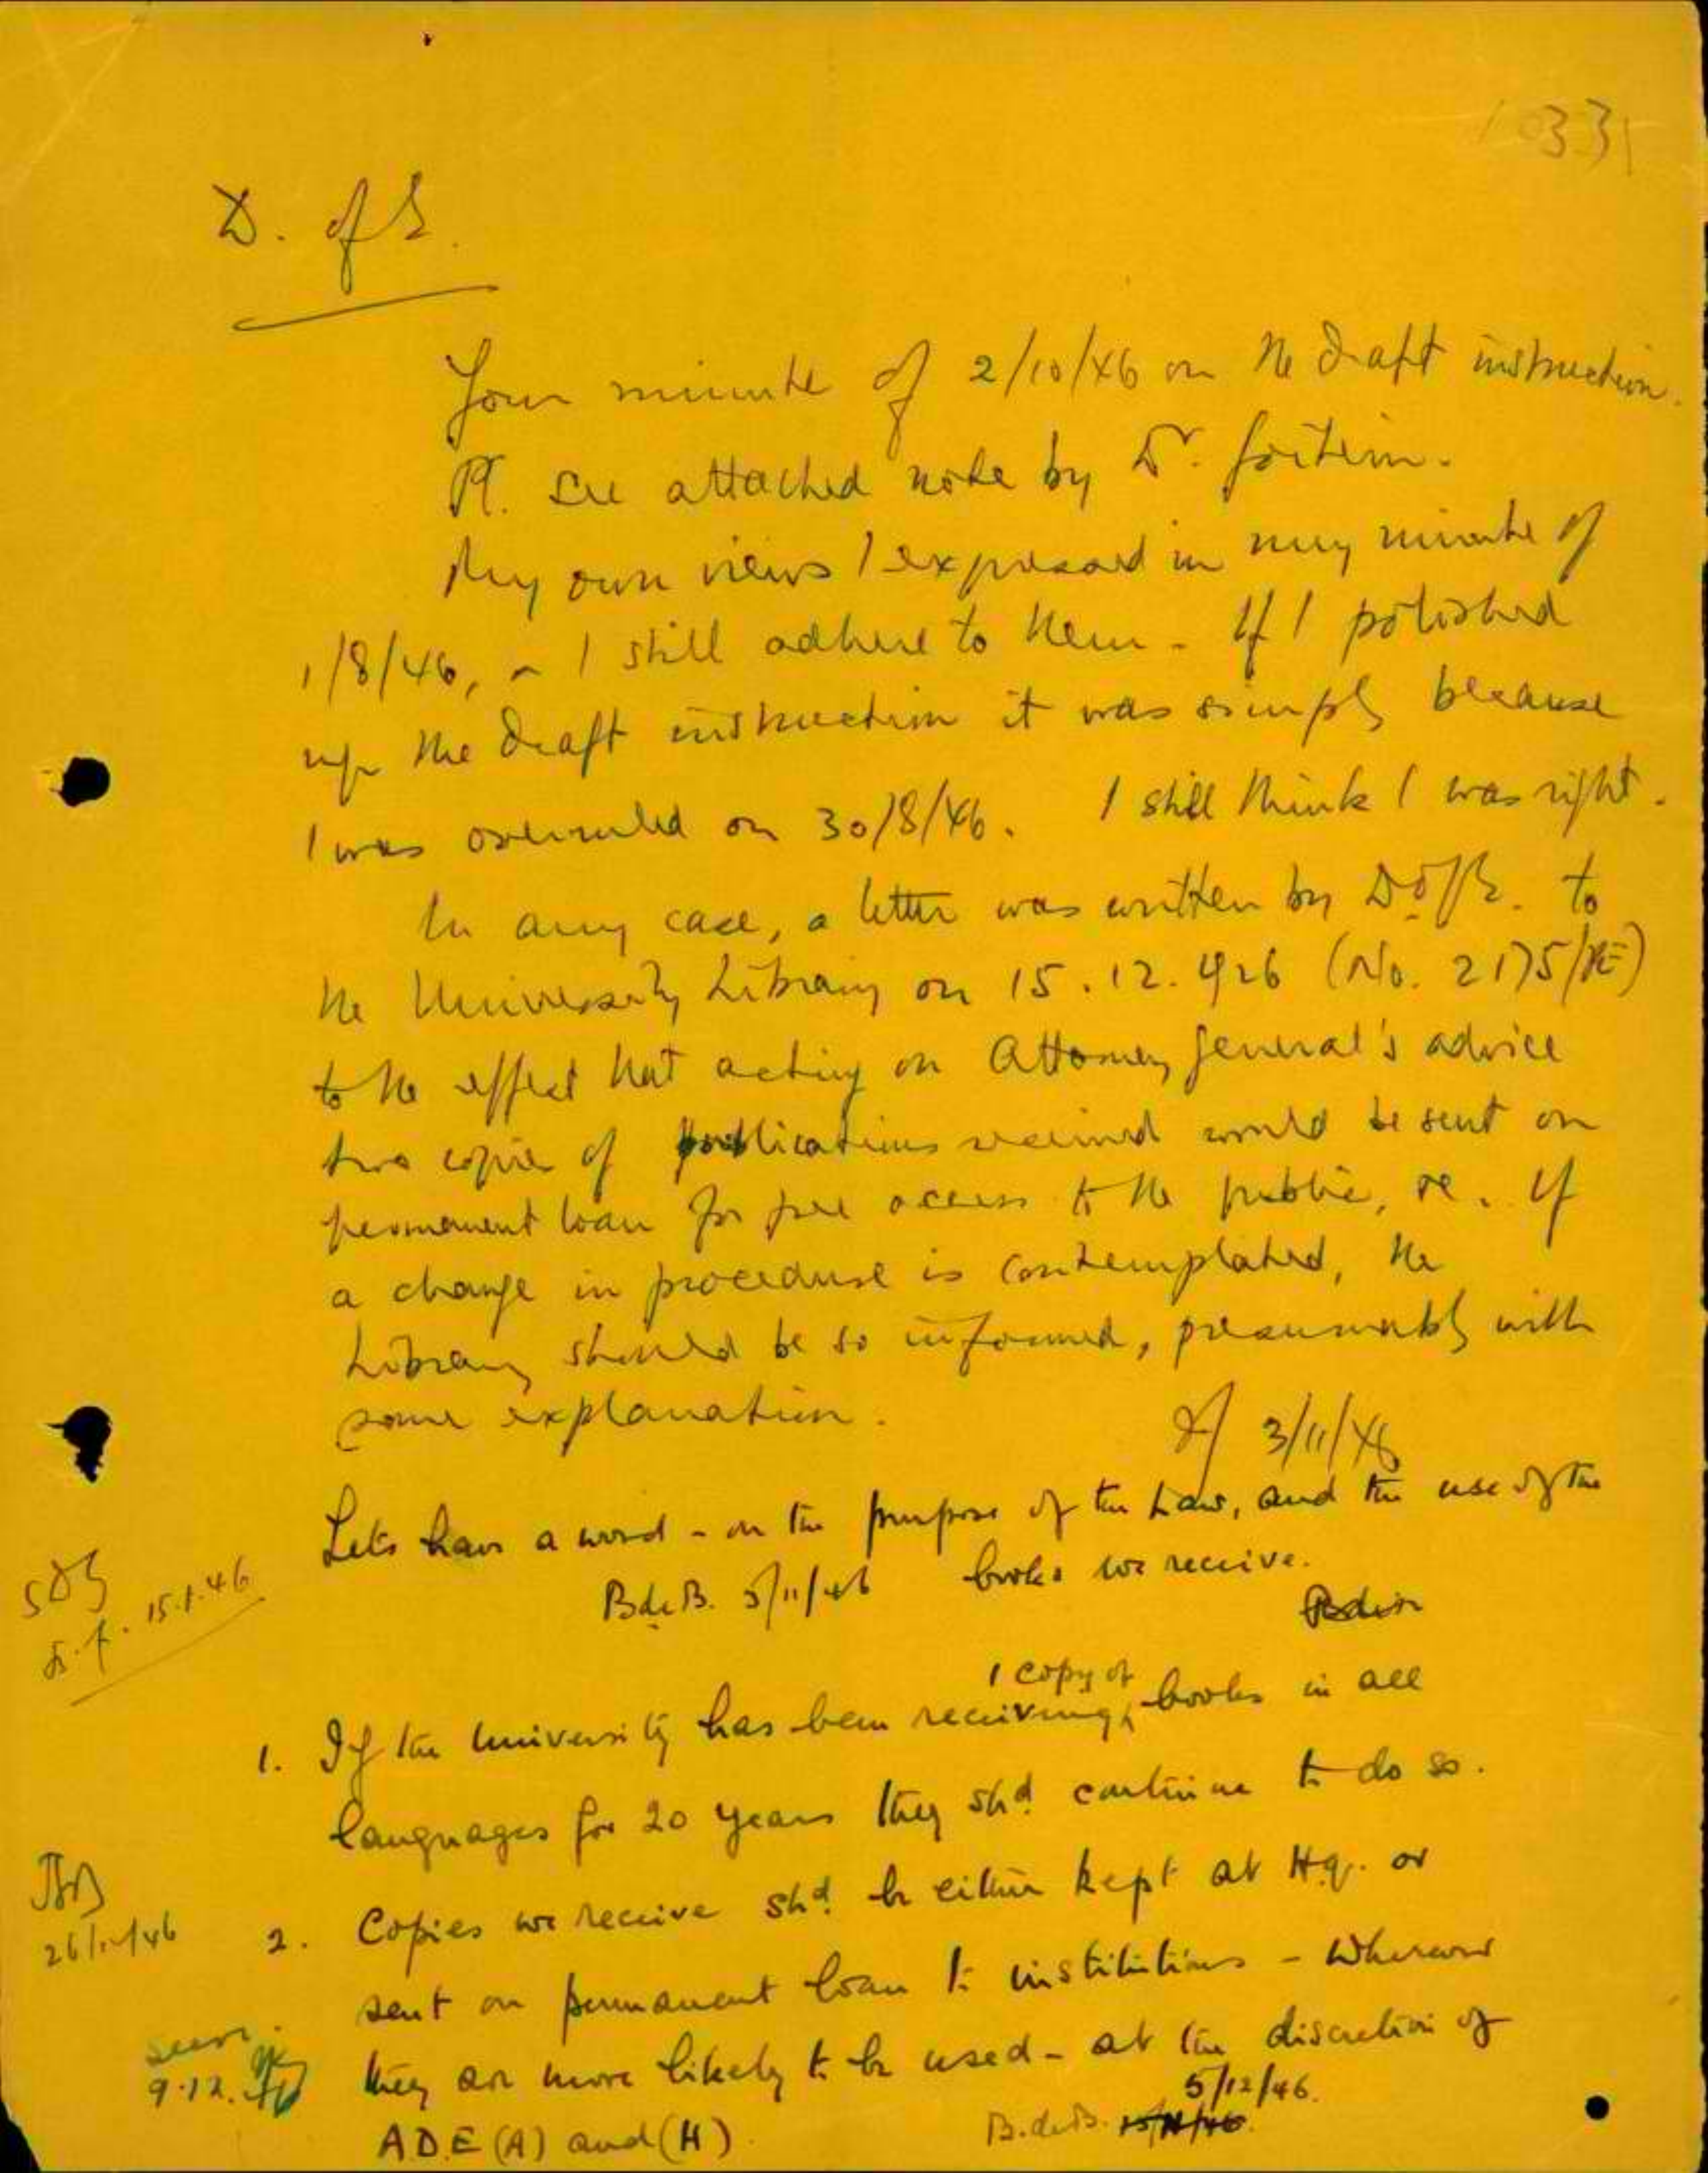 1033
D. of E.
Your minute of 2/10/46 on the draft instruction.
Pl. see attached note by Dr. Goitein.
My own views I expressed in my minute of
1/8/46, I still adhere to them. If I polished
up the draft instruction it was simply because
I was overruled on 30/8/46. I still think I was right.
In any case, a letter was written by D. of E. to
the University Library on 15.12.926 (No. 2175/)
to the effect that acting on Attorney General's advice
two copies of publications received would be sent on
permanent loan for free access to the public, If
a change in procedure is contemplated, the
Library should be so informed, presumably with
some explanation.
3/11/46
Lets have a word - on the purpose of the Law, and the use of the
books we receive.
B.deB. 5/11/46
15.1.46
1. If the University has been receiving 1 copy of books in all
languages for 20 years they shd. continue to do so.
26/11/46
2. Copies we receive shd. be either kept at H.q. or
sent on permanent loan to institutions - wherever
they are more likely to be used - at the discretion of
A.D.E (A) and (H).
seen.
9.12.46
5/12/46.
B.deB.